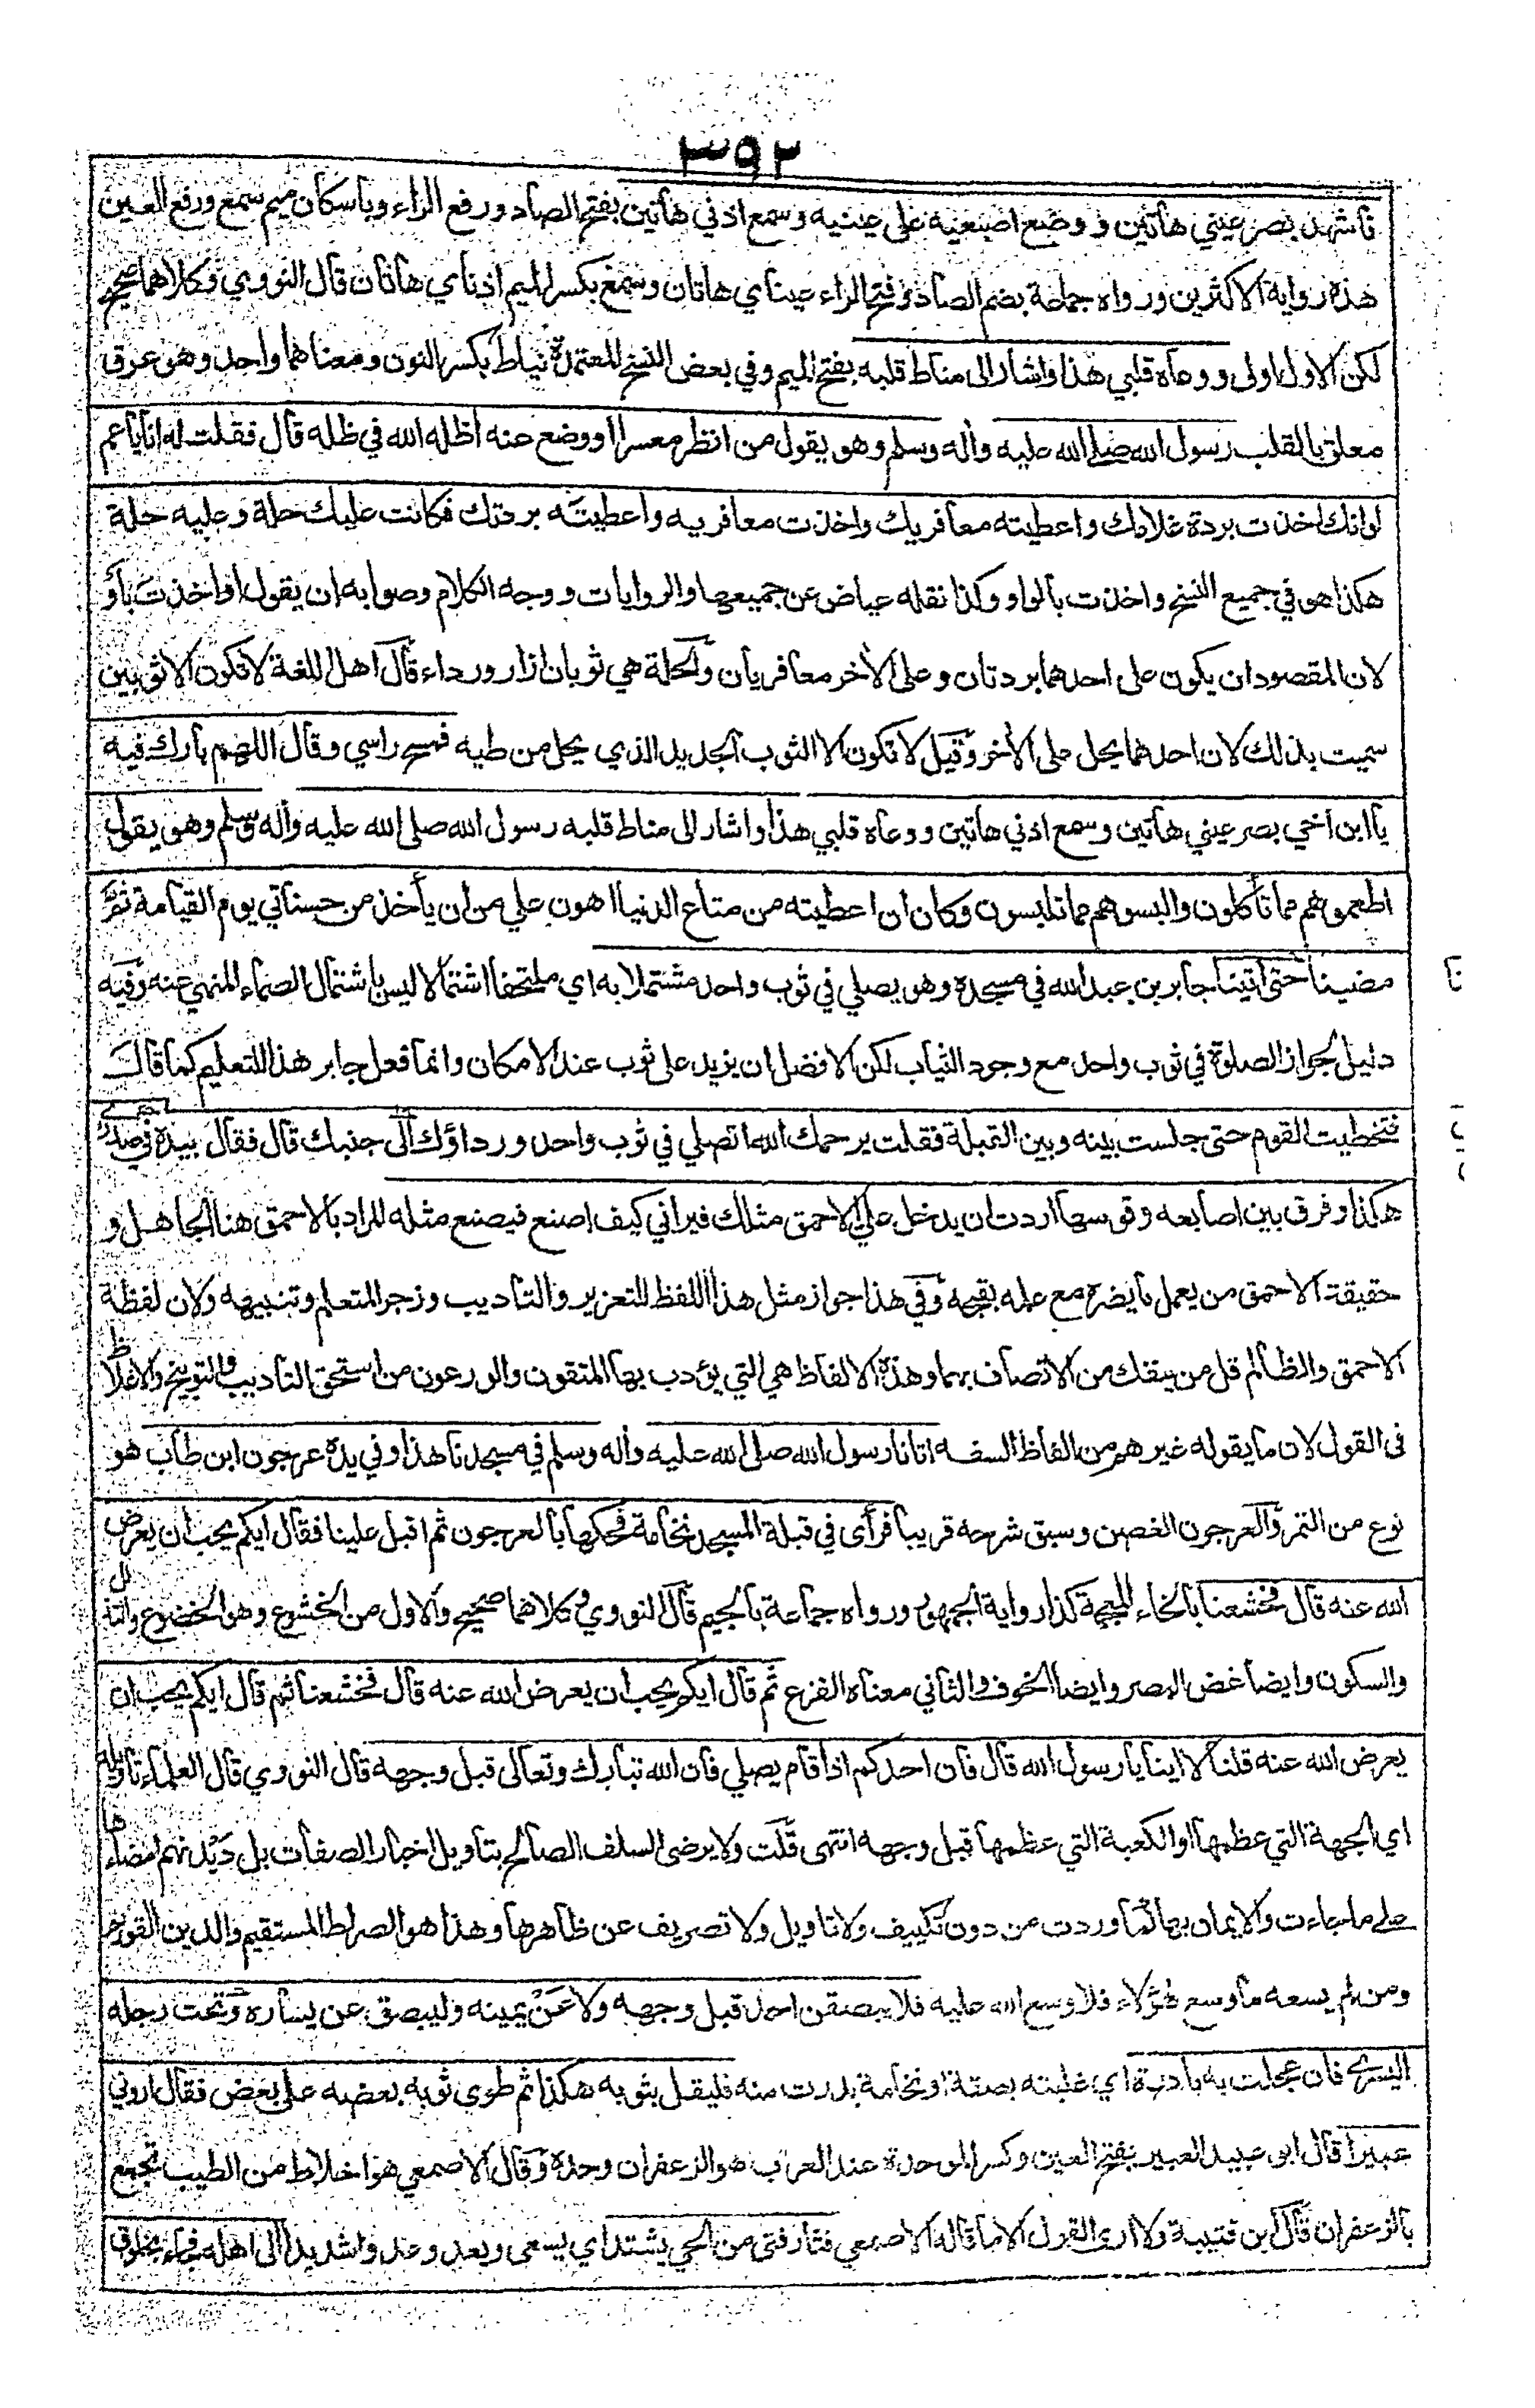 ٣٩٢
فاشهد بصر عيني هاتين ووضع اصبعيه على عينيه وسمع اذني هاتين بفتح الصاد ورفع الراء وباسكان ميم سمع ورفع العين
هذه رواية الاكثرين ورواه جماعة بضم الصاد وفتح الراء عيناي هاتان وسمع بكسر الميم اذناي هاتان قال النووي وكلاهما صحيح
لكن الاول اولى ووعاه قلبي هذا واشار الى مناط قلبه بفتح الميم وفي بعض النسخ المعتمدة نياط بكسر النون ومعناهما واحد وهو عرق
معلق بالقلب رسول الله صلى الله عليه واله وسلم وهو يقول من انظر معسرا او وضع عنه اظله الله في ظله قال فقلت له انا يا عم
لو انك اخذت بردة غلامك واعطيته معافريك واخذت معافريه واعطيته بردتك فكانت عليك حلة وعليه حلة
هكذا هو في جميع النسخ واخذت بالواو وكذا نقله عياض عن جميعها والروايات ووجه الكلام وصوابه ان يقول او اخذت باو
لان المقصود ان يكون على احدهما بردتان وعلى الاخر معافريان والحلة هي ثوبان ازار ورداء قال اهل اللغة لا تكون الا ثوبين
سميت بذلك لان احدهما يحل على الاخر وقيل لا تكون الا الثوب الجديد الذي يحل من طيه فمسح راسي وقال اللهم بارك فيه
يا ابن اخي بصر عيني هاتين وسمع اذني هاتين ووعاه قلبي هذا واشار الى مناط قلبه رسول الله صلى الله عليه واله وسلم وهو يقول
اطعموهم مما تأكلون والبسوهم مما تلبسون وكان ان اعطيته من متاع الدنيا اهون علي من ان يأخذ من حسناتي يوم القيامة ثم
مضينا حتى اتينا جابر بن عبد الله في مسجده وهو يصلي في ثوب واحد مشتملا به اي ملتحفا اشتمالا ليس باشتمال الصماء المنهي عنه وفيه
دليل لجواز الصلوة في ثوب واحد مع وجود الثياب لكن الافضل ان يزيد على ثوب عند الامكان وانما فعل جابر هذا للتعليم كما قال
فتخطيت القوم حتى جلست بينه وبين القبلة فقلت يرحمك الله اتصلي في ثوب واحد ورداؤك الى جنبك قال فقال بيده في صدري
هكذا وفرق بين اصابعه وقوسها اردت ان يدخل علي الاحمق مثلك فيراني كيف اصنع فيصنع مثله المراد بالاحمق هنا الجاهل و
حقيقة الاحمق من يعمل ما يضره مع علمه بقبحه وفي هذا جواز مثل هذا اللفظ للتعزير والتاديب وزجر المتعلم وتنبيهه ولان لفظة
الاحمق والظالم قل من ينفك من الاتصاف بهما وهذه الالفاظ هي التي يؤدب بها المتقون والورعون من استحق التاديب والتوبيخ والاغلاظ
في القول لان ما يقوله غيرهم من الفاظ السفه اتانا رسول الله صلى الله عليه واله وسلم في مسجدنا هذا وفي يده عرجون ابن طاب هو
نوع من التمر والعرجون الغصن وسبق شرحه قريبا فرأى في قبلة المسجد نخامة فحكها بالعرجون ثم اقبل علينا فقال ايكم يحب ان يعرض
الله عنه قال فخشعنا بالخاء المعجمة كذا رواية الجمهور ورواه جماعة بالجيم قال النووي وكلاهما صحيح والاول من الخشوع وهو الخضوع والتذلل
والسكون وايضا غض البصر وايضا الخوف والثاني معناه الفزع ثم قال ايكم يحب ان يعرض الله عنه قال فخشعنا ثم قال ايكم يحب ان
يعرض الله عنه قلنا لا اينا يا رسول الله قال فان احدكم اذا قام يصلي فان الله تبارك وتعالى قبل وجهه قال النووي قال العلماء تاويله
اي الجهة التي عظمها او الكعبة التي عظمها قبل وجهه انتهى قلت ولا يرضى السلف الصالح بتاويل اخبار الصفات بل ديدنهم امضاؤها
على ما جاءت والايمان بها كما وردت من دون تكييف ولا تاويل ولا تصريف عن ظاهرها وهذا هو الصراط المستقيم والدين القويم
ومن لم يسعه ما وسع هؤلاء فلا وسع الله عليه فلا يبصقن احد قبل وجهه ولا عن يمينه وليبصق عن يساره وتحت رجله
اليسرى فان عجلت به بادرة اي غلبته بصقة او نخامة بدرت منه فليقل بثوبه هكذا ثم طوى ثوبه بعضه على بعض فقال اروني
عبيرا قال ابو عبيد العبير بفتح العين وكسر الموحدة عند العرب هو الزعفران وحده وقال الاصمعي هو اخلاط من الطيب تجمع
بالزعفران قال ابن قتيبة ولا ارى القول الا ما قاله الاصمعي فثار فتى من الحي يشتد اي يسعى ويعدو عدوا شديدا الى اهله فجاء بخلوق